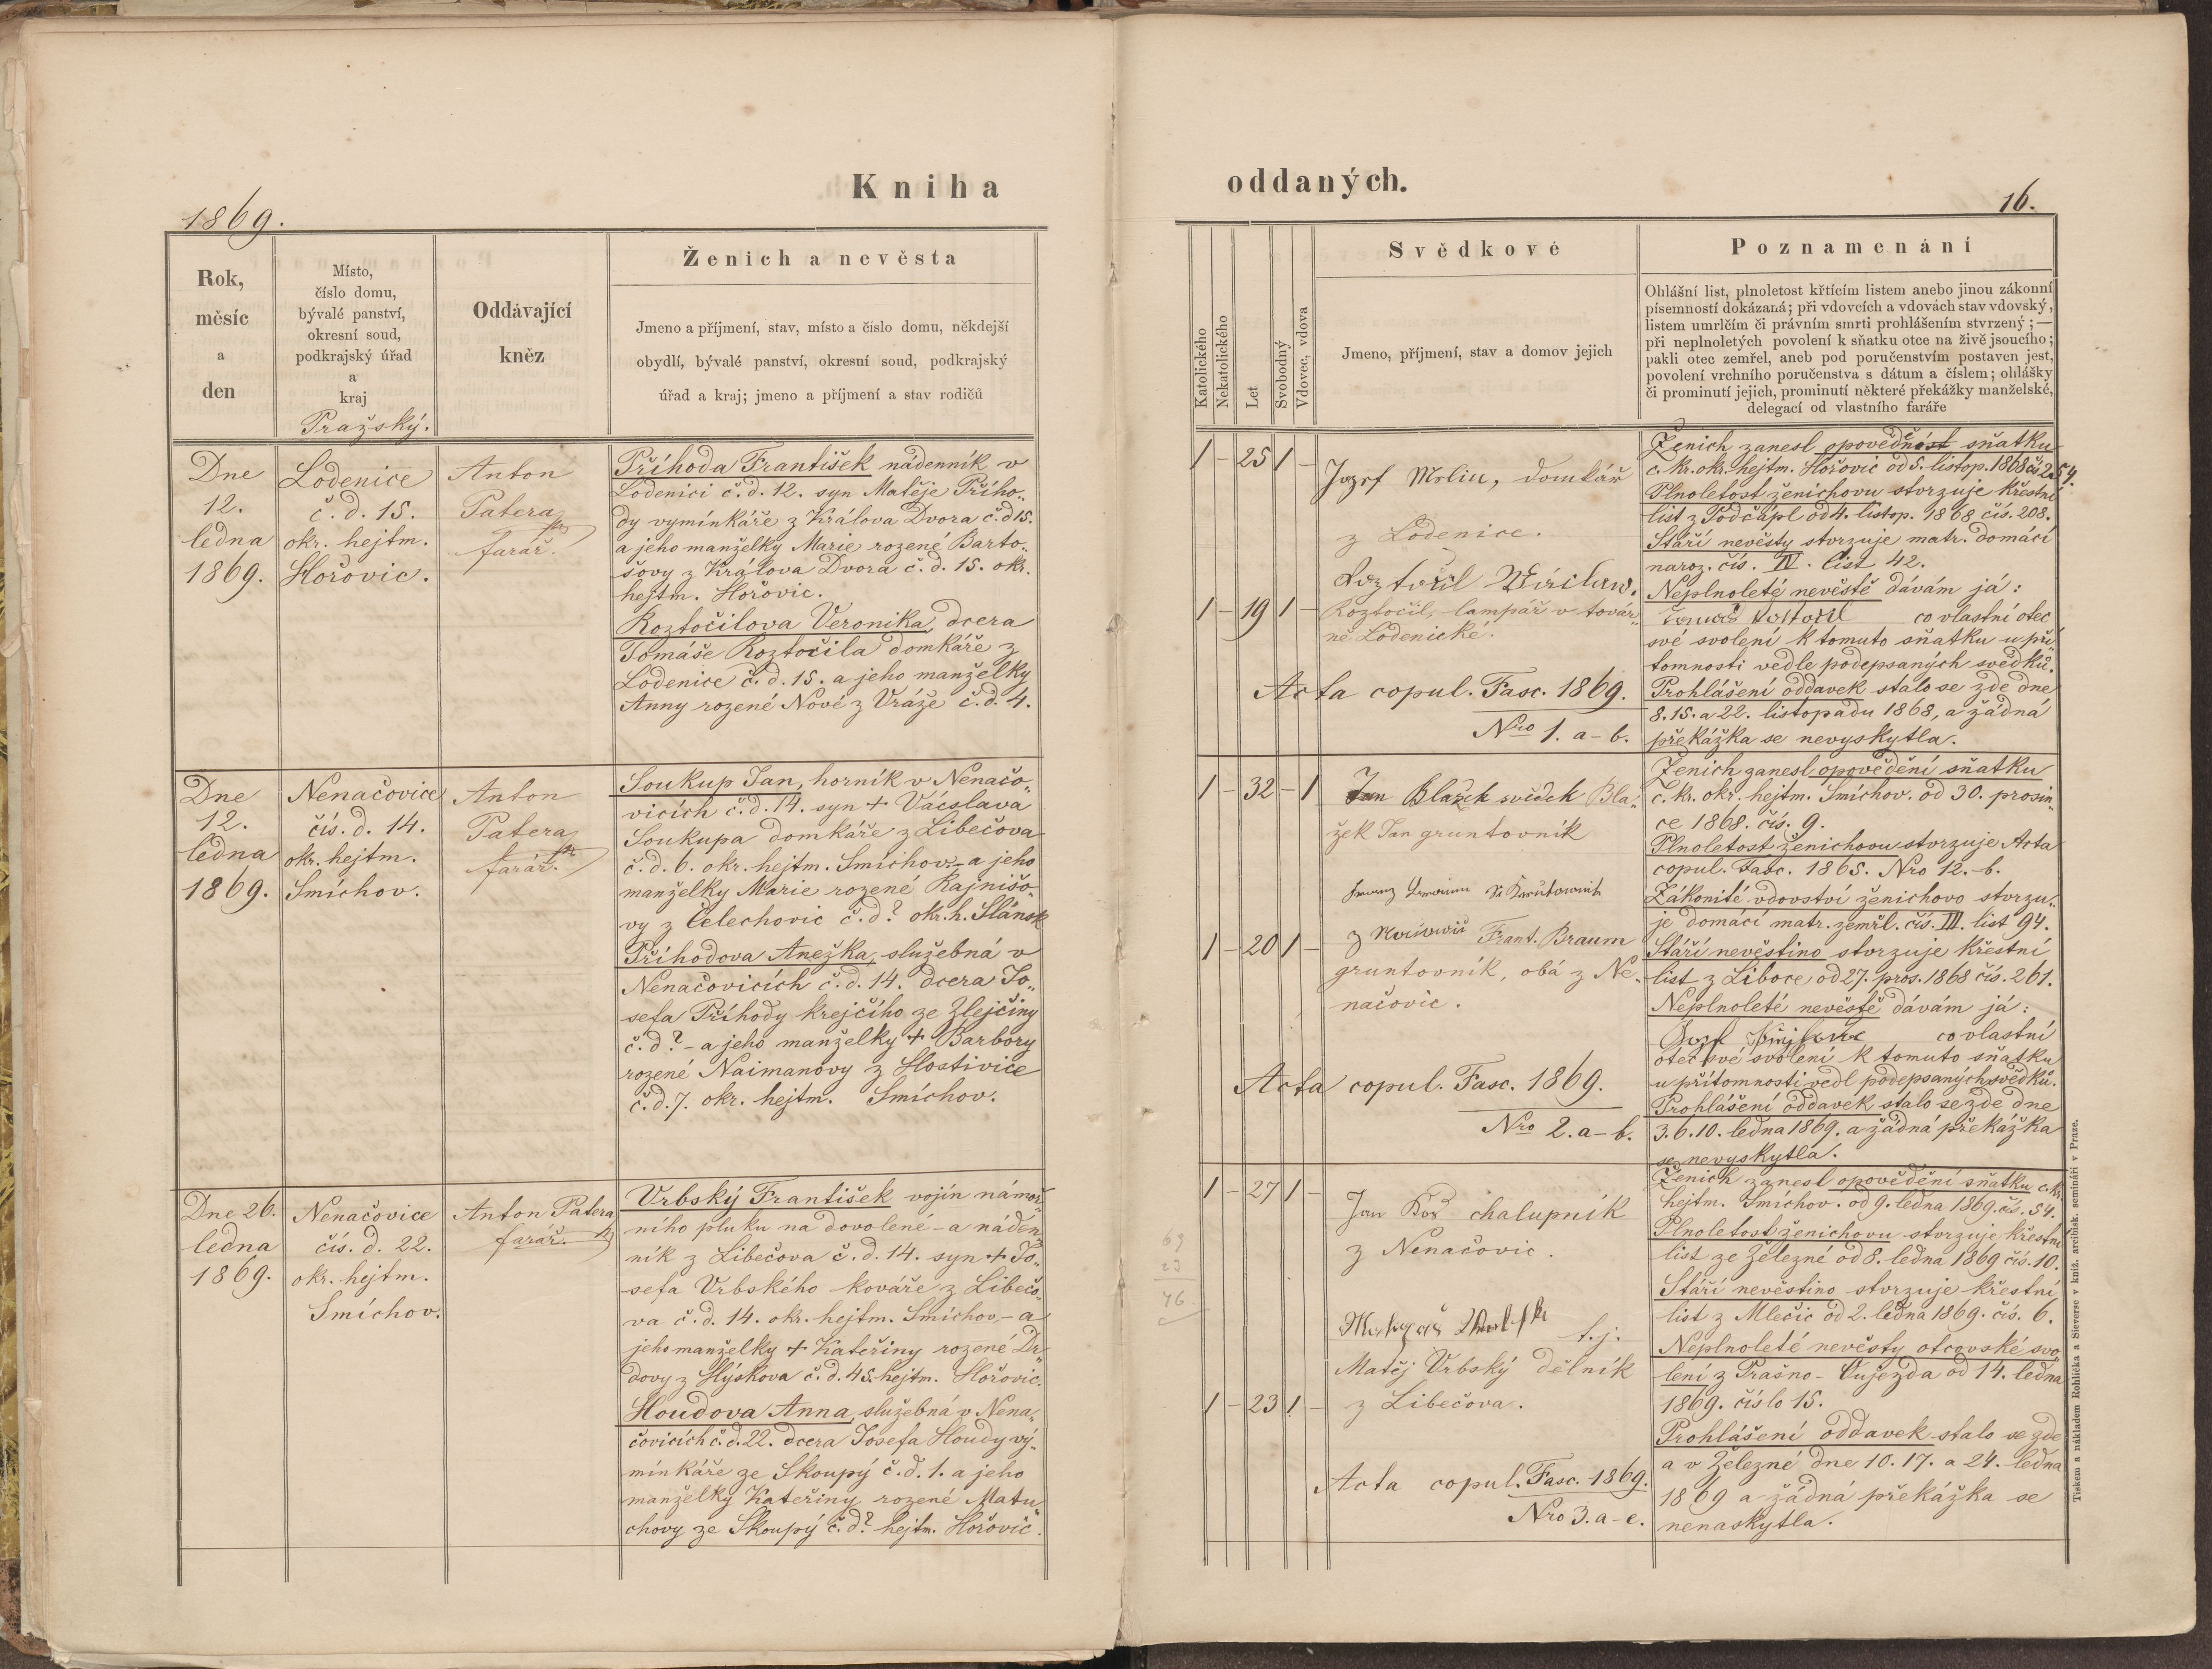 Kniha
1869.
Rok,
měsíc
a
den
Místo,
číslo domu,
bývalé panství,
okresní soud,
podkrajský úřad
a
kraj
Pražský.
Oddávající
kněz
Ženich a nevěsta
Jmeno a příjmení, stav, místo a číslo domu, někdejší
obydlí, bývalé panství, okresní soud, podkrajský
úřad a kraj; jmeno a příjmení a stav rodičů
Dne
12.
ledna
1869.
Lodenice
č. d. 15.
okr. hejtm.
Hořovic.
Anton
Patera
farář.
Příhoda František nádenník v
Lodenici č. d. 12. syn Matěje Přího„
dy vymínkáře z Králova Dvora č. d 15.
a jeho manželky Marie rozené Barto„
šovy z Králova Dvora č. d. 15. okr.
hejtm. Hořovic.
Roztočilova Veronika, dcera
Tomáše Roztočila domkáře z
Lodenice č. d. 15. a jeho manželky
Anny rozené Nové z Vráže č. d. 4.
Dne
12.
ledna
1869.
Nenačovice
čís. d. 14.
okr. hejtm.
Smíchov.
Anton
Patera
farář.
Soukup Jan, horník v Nenačo„
vicích č. d. 14. syn + Václava
Soukupa domkáře z Libečova
č. d. 6. okr. hejtm. Smíchov – a jeho
manželky Marie rozené Rajnišo„
vy z Čelechovic č. d? okr. h. Slánsk
Příhodova Anežka, služebná v
Nenačovicích č. d. 14. dcera Jo„
sefa Příhody krejčího ze Zlejčiny
č. d? – a jeho manželky + Barbory
rozené Naimanovy z Hostivice
č. d. 7. okr. hejtm. Smíchov.
Dne 26.
ledna
1869.
Nenačovice
čís. d. 22.
okr. hejtm.
Smíchov.
Anton Patera
farář.
Vrbský František vojín námoř„
ního pluku na dovolené – a náden„
ník z Libečova č. d. 14. syn + Jo„
sefa Vrbského kováře z Libečo„
va č. d. 14. okr. hejtm. Smíchov – a
jeho manželky + Kateřiny rozené Dr„
dovy z Hýskova č. d. 45. hejtm. Hořovic.
Houdova Anna, služebná v Nena„
čovicích č. d. 22. dcera Josefa Houdy vý„
minkáře ze Skoupý č. d. 1. a jeho
manželky Kateřiny rozené Matu„
chovy ze Skoupý č. d? hejtm. Hořovic.
oddaných.
16.
Katolického
Nekatolického
Let
Svobodný
Vdovec, vdova
Svědkové
Jmeno, příjmení, stav a domov jejich
Poznamenání
Ohlášní list, plnoletost křtícím listem anebo jinou zákonní
písemností dokázaná; při vdovcích a vdovách stav vdovský,
listem umrlčím či právním smrti prohlášením stvrzený; —
při neplnoletých povolení k sňatku otce na živě jsoucího;
pakli otec zemřel, aneb pod poručenstvím postaven jest,
povolení vrchního poručenstva s dátum a číslem; ohlášky
či prominutí jejich, prominutí některé překážky manželské,
delegací od vlastního faráře
1 – 25 1 –
domkář
z Lodenice.
1 – 19 1 –
Roztočil, lampář v továr„
ně Lodenické.
Acta copul. Fasc. 1869.
Nro 1. a – b.
Ženich zanesl opovědnost sňatku
c. kr. okr. hejtm. Hořovic od 5. listop. 1868 čís 254.
Plnoletost ženichovu stvrzuje křestní
list z Podčápl od 4. listop. 1868 čís. 208.
Stáří nevěsty stvrzuje matr. domácí
naroz. čís. IV. list 42.
Neplnoleté nevěstě dávám já:
co vlastní otec
své svolení k tomuto sňatku u pří„
tomnosti vedle podepsaných svědků.
Prohlášení oddavek stalo se zde dne
8. 15. a 22. listopadu 1868, a žádná
překážka se nevyskytla.
1 – 32 – 1
Jan Blažek svědek Bla„
žek Jan gruntovník
1 – 20 1 –
Frant. Braum
gruntovník, obá z Ne„
načovic.
Acta copul. Fasc. 1869.
Nro 2. a – b.
Ženich zanesl opovědění sňatku
c. kr. okr. hejtm. Smíchov. od 30. prosin„
ce 1868. čís. 9.
Plnoletost ženichovu stvrzuje Acta
copul. Fasc. 1865. Nro 12. – b.
Zákonité vdovství ženichovo stvrzu„
je domácí matr. zemřl. čís. III. list 94.
Stáří nevěstino stvrzuje křestní
list z Liboce od 27. pros. 1868 čís. 261.
Neplnoleté nevěstě dávám já:
co vlastní
otec své svolení k tomuto sňatku
u přítomnosti vedl podepsaných svědků.
Prohlášení oddavek stalo se zde dne
3. 6. 10. ledna 1869. a žádná překážka
se nevyskytla.
1 – 27 1 –
Jan chalupník
z Nenačovic.
69
23
46
t. j.
Matěj Vrbský dělník
1 – 23 1 –
z Libečova.
Acta copul. Fasc. 1869.
Nro 3. a – e.
Ženich zanesl opovědění sňatku c. kr.
hejtm. Smíchov. od 9. ledna 1869. čís. 54.
Plnoletost ženichovu stvrzuje křestní
list ze Železné od 8. ledna 1869 čís. 10.
Stáří nevěstino stvrzuje křestní
list z Mlečic od 2. ledna 1869. čís. 6.
Neplnoleté nevěsty otcovské svo„
lení z Prašno-Vujezda od 14. ledna
1869. číslo 15.
Prohlášení oddavek stalo se zde
a v Železné dne 10. 17. a 24. ledna
1869 a žádná překážka se
nenaskytla.
Tiskem a nákladem Rohlíčka a Sieverse v kníž. arcibisk. semináři v Praze.